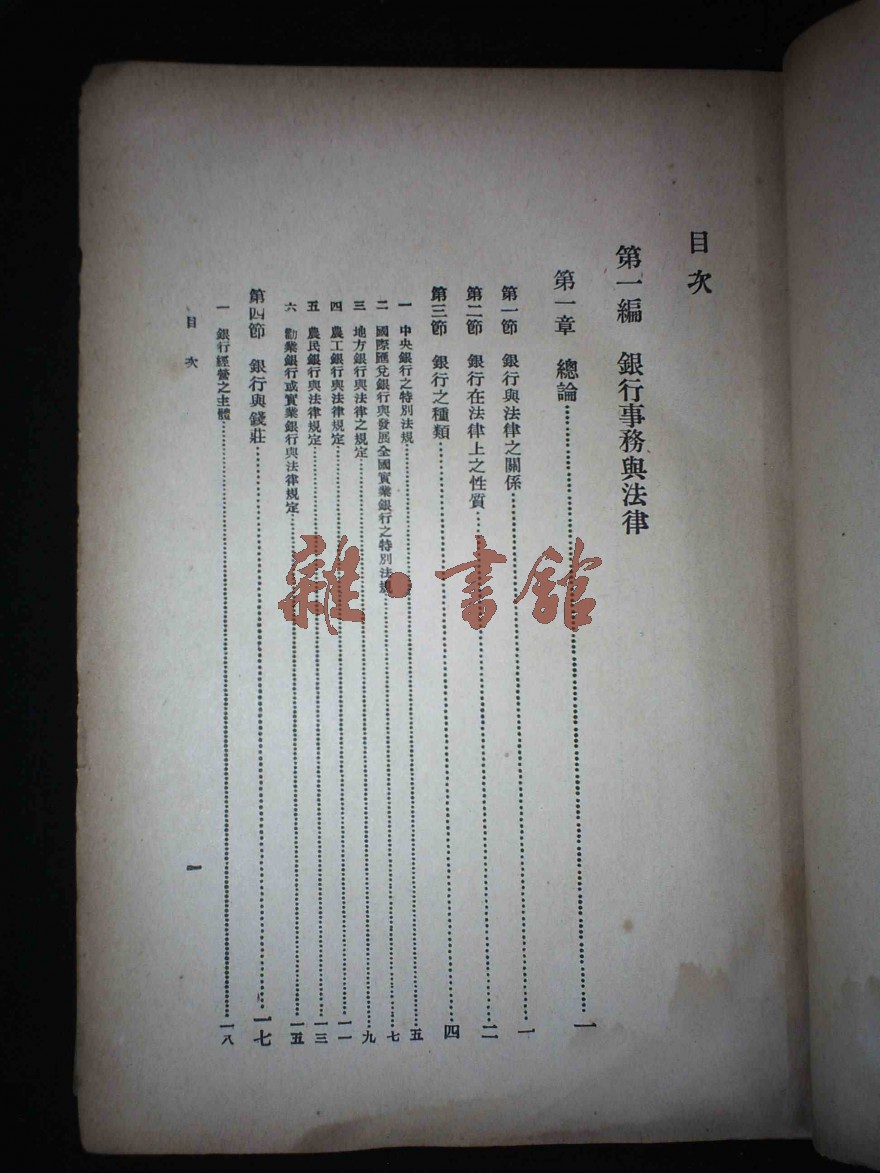 目次
第一編　銀行事務與法律
第一章　總論……一
第一節　銀行與法律之關係……一
第二節　銀行在法律上之性質……二
第三節　銀行之種類……四
一　中央銀行之特別法規……五
二　國際匯兌銀行與發展全國實業銀行之特別法規……七
三　地方銀行與法律之規定……九
四　農工銀行與法律規定……一一
五　農民銀行與法律規定……一三
六　勸業銀行或實業銀行與法律規定……一五
第四節　銀行與錢莊……一七
一　銀行經營之主體……一八
目次
一
雜·書館